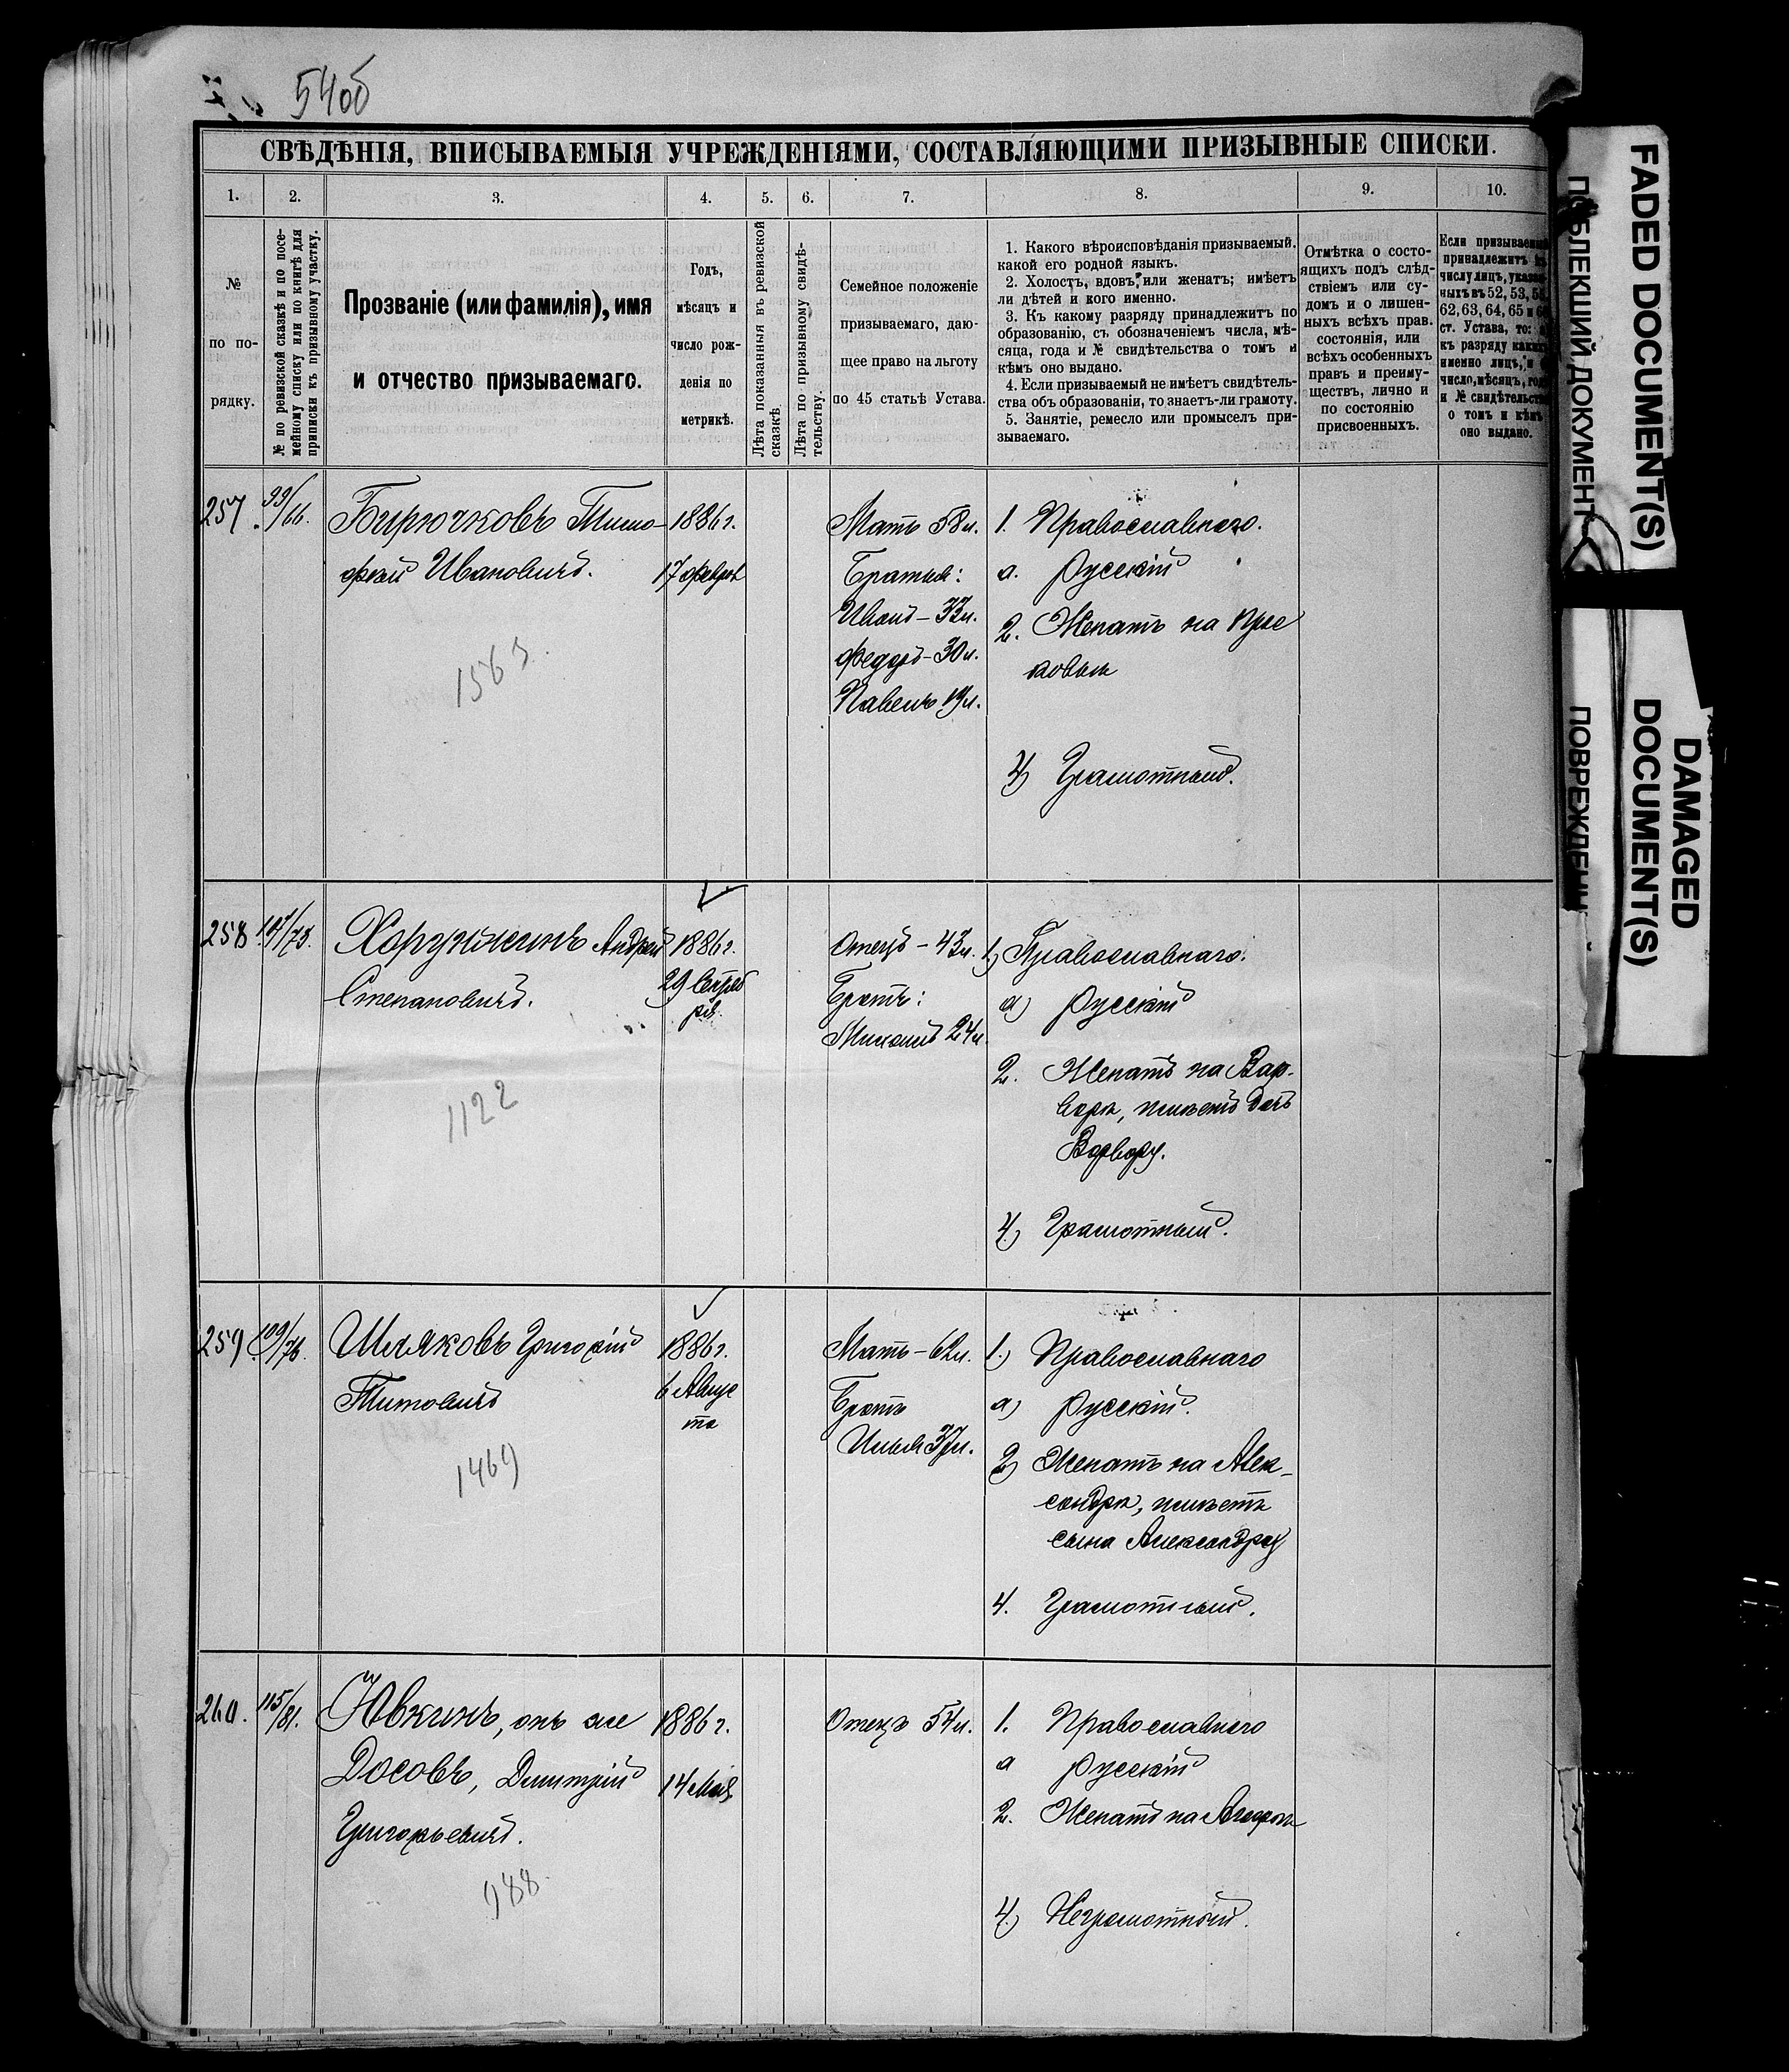 54об
СВѢДѢНІЯ, ВПИСЫВАЕМЫЯ УЧРЕЖДЕНІЯМИ, СОСТАВЛЯЮЩИМИ ПРИЗЫВНЫЕ СПИСКИ.
1. 2. 3. 4. 5. 6. 7. 8. 9. 10.
№
по по-
рядку.
№ по ревизской сказкѣ и по посе-
мейному списку или по книгѣ для
приписки къ призывному участку.
Прозваніе (или фамилія), имя
и отчество призываемаго.
Годъ,
мѣсяцъ и
число рож-
денія по
метрикѣ.
Лѣта показанныя въ ревизской
сказкѣ.
Лѣта по призывному свидѣ-
тельству.
Семейное положеніе
призываемаго, даю-
щее право на льготу
по 45 статьѣ Устава.
1. Какого вѣроисповѣданія призываемый.
какой его родной языкъ.
2. Холостъ, вдовъ или женатъ; имѣетъ
ли дѣтей и кого именно.
3. Къ какому разряду принадлежитъ по
образованію, съ обозначеніемъ числа, мѣ-
сяца, года и № свидѣтельства о томъ и
кѣмъ оно выдано.
4. Если призываемый не имѣетъ свидѣтель-
ства объ образованіи, то знаетъ-ли грамоту.
5. Занятіе, ремесло или промыселъ при-
зываемаго.
Отмѣтка о состо-
ящихъ подъ слѣд-
ствіемъ или су-
домъ и о лишен-
ныхъ всѣхъ прав.
состоянія, или
всѣхъ особенныхъ
правъ и преиму-
ществъ, лично и
по состоянію
присвоенныхъ.
Если призываемый
принадлежитъ
числу лицъ, указан-
ныхъ въ 52, 53,
62, 63, 64, 65 и
ст. Устава, то:
къ разряду какихъ
именно лицъ, и
число, мѣсяцъ, год
и № свидѣтельства
о томъ и кѣмъ
оно выдано.
257 99/66.
Бирючковъ Тимо-
фей Ивановичъ.
1565.
1886 г.
17 Февра
Мать 58 л.
Братья:
Иванъ - 33 л.
Федоръ - 30 л.
Павелъ 19 л.
1. Православнаго.
а. Русскій
2. Женатъ на Прас
ковьи
4) Грамотный.
258 107/73.
Хорунжинъ Андрей
Степановичъ.
1122
1886 г.
29 Октяб
ря.
Отецъ - 43 л.
Братъ:
Михаилъ 24 л.
1.) Православнаго.
а) Русскій
2. Женатъ на Вар-
вары, имѣетъ дочь
Варвару.
4.) Грамотный.
259 109/76.
Шляковъ Григорій
Титовичъ
1469
1886 г.
6 Авгус
та
Мать - 62 л.
Братъ
Илья 37 л.
1.) Православнаго
а) Русскій.
2) Женатъ на Алек-
сандрѣ, имѣетъ
сына Александра
4. Грамотный.
260. 115/81.
Ювкинъ, онъ же
Досовъ, Дмитрій
Григорьевичъ.
988.
1886 г.
14 Мая
Отецъ 54 л.
1. Православнаго
а Русскій
2. Женатъ на
4.) Неграмотный.
FADED DOCUMENT(S)
ПОБЛЕКШИЙ ДОКУМЕНТ
DAMAGED
DOCUMENT(S)